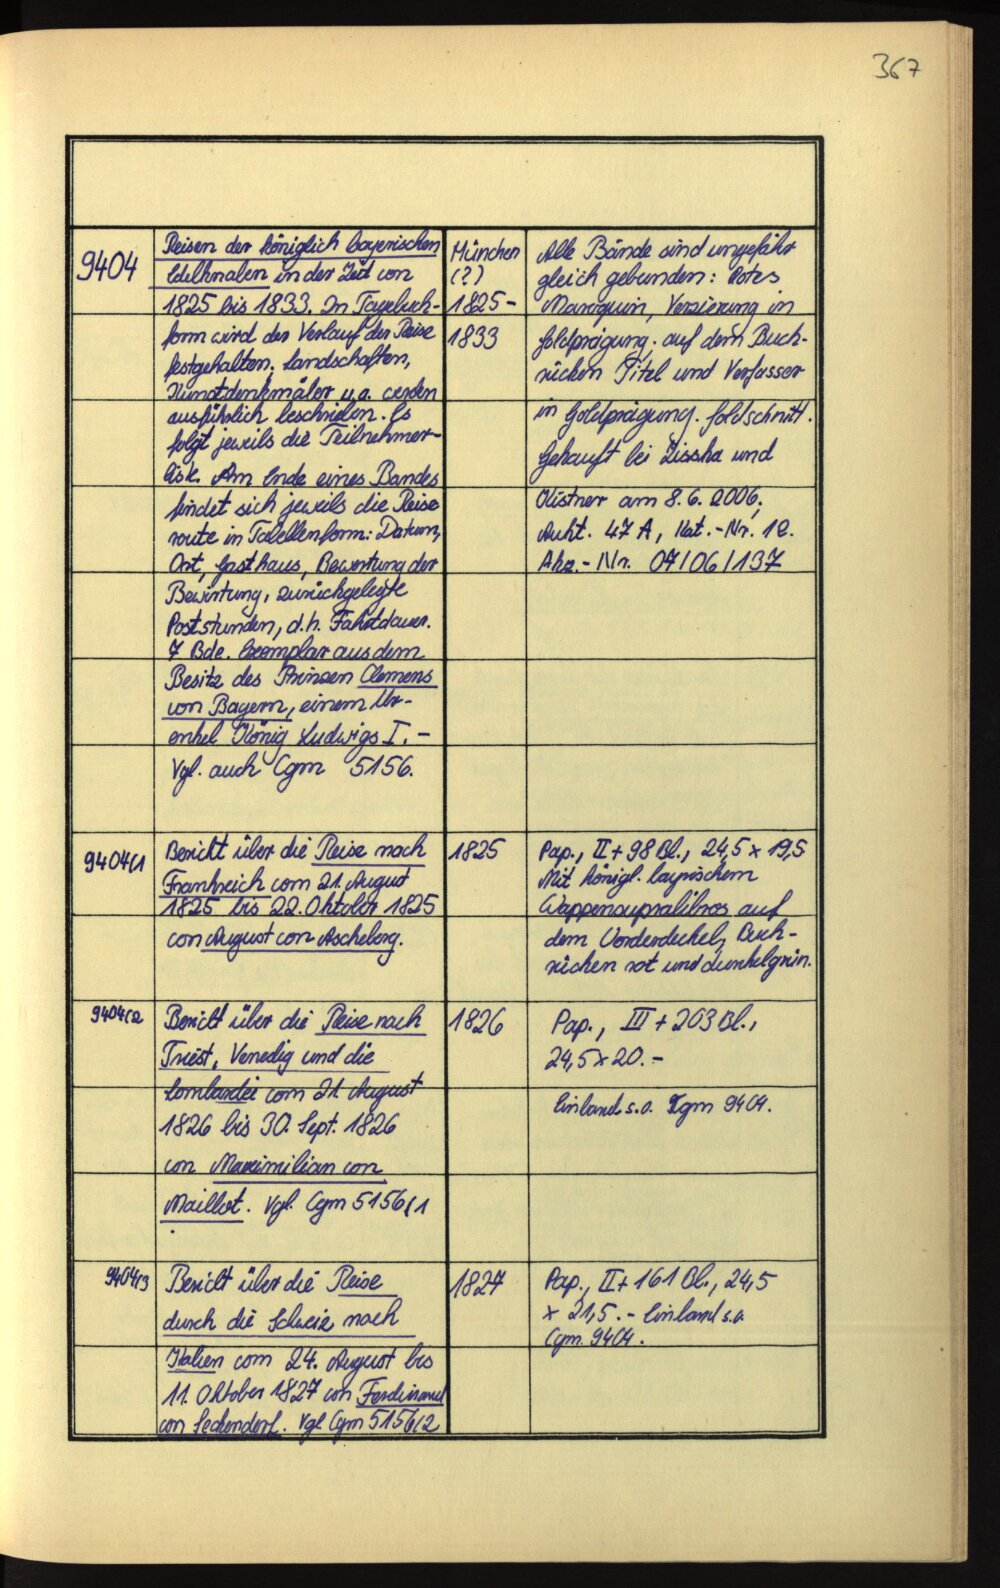 367
9404
Reisen der königlich bayerischen
Edelknaben in der Zeit von
1825 bis 1833. In Tagebuch-
form wird der Verlauf der Reise
festgehalten. Landschaften,
Kunstdenkmäler u.a. werden
ausführlich beschrieben. Es
folgt jeweils die Teilnehmer-
liste. Am Ende eines Bandes
findet sich jeweils die Reise
route in Tabellenform: Datum,
Ort, Gasthaus, Bewertung der
Bewirtung, zurückgelegte
Poststunden, d.h. Fahrtdauer.
7 Bde. Exemplar aus dem
Besitz des Prinzen Clemens
von Bayern, einem Ur-
enkel König Ludwigs I. -
Vgl. auch Cgm 5156.
München
(?)
1825-
1833
Alle Bände sind ungefähr
gleich gebunden: Rotes
Maroquin, Verzierung in
Goldprägung. auf dem Buch-
rücken Titel und Verfasser
in Goldprägung. Goldschnitt.
Gekauft bei Zisska und
Kistner am 8.6.2006,
Aukt. 47 A, Kat.-Nr. 12.
Akz.-Nr. 04/06/137
9404/1
Bericht über die Reise nach
Frankreich vom 21. August
1825 bis 22. Oktober 1825
von August von Ascheberg.
1825
Pap., II + 98 Bl., 24,5 x 19,5
Mit königl. bayrischem
Wappensupralibros auf
dem Vorderdeckel, Buch-
rücken rot und dunkelgrün.
9404/2
Bericht über die Reise nach
Triest, Venedig und die
Lombardei vom 21. August
1826 bis 30. Sept. 1826
von Maximilian von
Maillot. Vgl. Cgm 5156/1
1826
Pap., III + 203 Bl.,
24,5 x 20. -
Einband s.o. Cgm 9404.
9404/3
Bericht über die Reise
durch die Schweiz nach
Italien vom 24. August bis
11. Oktober 1827 von Ferdinand
von Seckendorf. Vgl. Cgm 5156/2
1827
Pap., II + 161 Bl., 24,5
x 21,5. - Einband s.o.
Cgm. 9404.